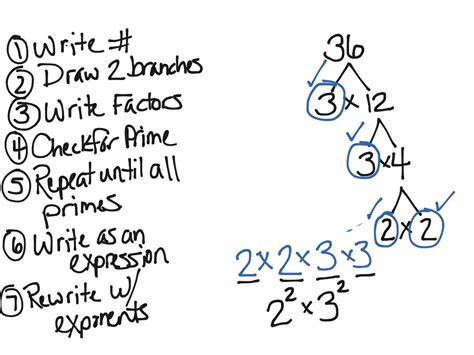 ① Write #
② Draw 2 branches
③ Write Factors
④ Check for Prime
⑤ Repeat until all
primes
⑥ Write as an
expression
⑦ Rewrite w/
exponents
36
3 × 12
3 × 4
2 × 2
2 × 2 × 3 × 3
2² × 3²